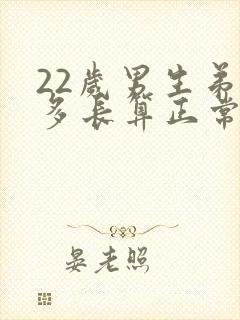 22岁男生弟
多长算正常
晏老照